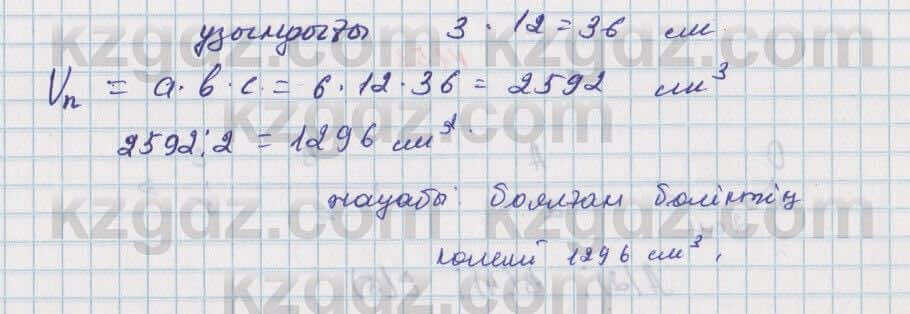 ұзындығы 3 · 12 = 36 см
Vп = a · b · c = 6 · 12 · 36 = 2592 см³
2592 : 2 = 1296 см³.
жауабы: боялған бөліктің
көлемі 1296 см³.
kzgdz.com